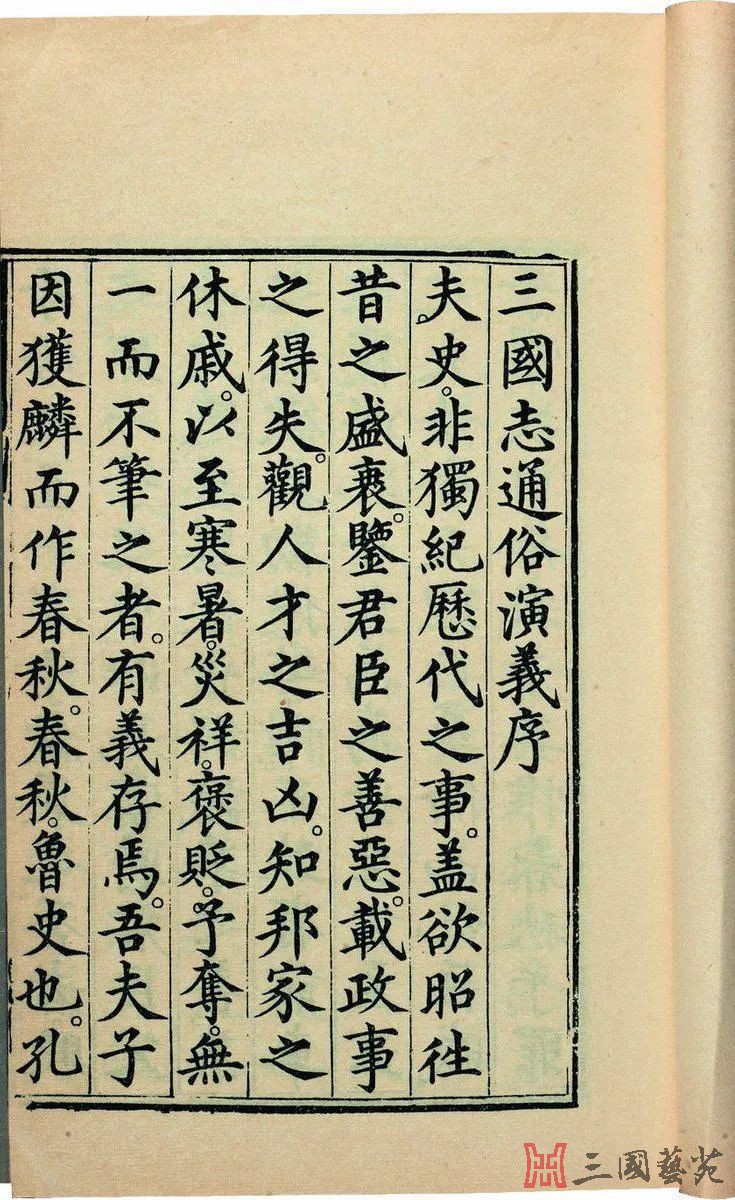 三國志通俗演義序
夫史。非獨紀歷代之事。盖欲昭徃
昔之盛衰。鑒君臣之善惡。載政事
之得失。觀人才之吉凶。知邦家之
休戚。以至寒暑。災祥。褒貶。予奪。無
一而不筆之者。有義存焉。吾夫子
因獲麟而作春秋。春秋。魯史也。孔
三國藝苑